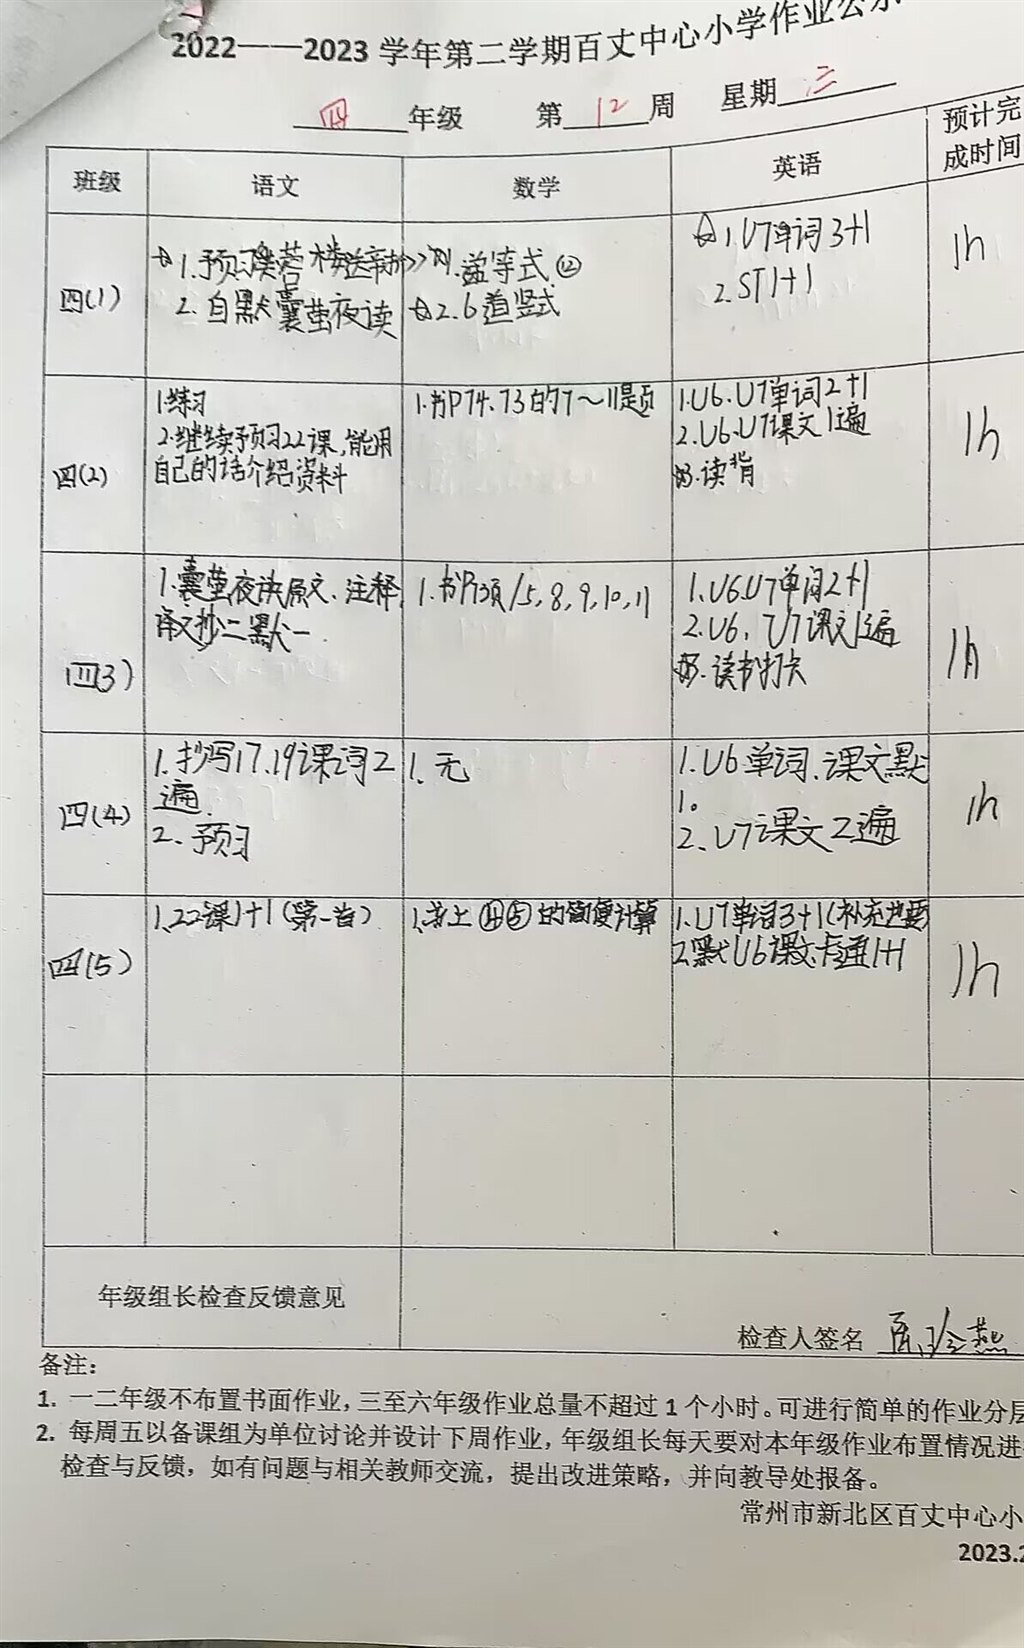 2022——2023 学年第二学期百丈中心小学作业公示
四 年级 第 12 周 星期 三
班级 语文 数学 英语 预计完
成时间
四(1)
1.预习芙蓉楼送辛渐
2.自默囊萤夜读
1.递等式
2.6道竖式
1.U7单词3+1
2.ST1+1
1h
四(2)
1.练习
2.继续预习22课,能用
自己的话介绍资料
1.书P74、73的7~11题
1.U6.U7单词2+1
2.U6.U7课文1遍
3.读背
1h
四(3)
1.囊萤夜读原文、注释,
译文抄二默一
1.书P73页/5,8,9,10,11
1.U6.U7单词2+1
2.U6、U7课文1遍
3.读书打卡
1h
四(4)
1.抄写17.19课词2
遍.
2、预习
1、无
1.U6单词、课文默
1。
2、U7课文2遍
1h
四(5)
1.22课1+1(第一首)
1.书上④⑤的简便计算
1.U7单词3+1(补充也要)
2.默U6课文.卡通1+1
1h
年级组长检查反馈意见
检查人签名
备注:
1. 一二年级不布置书面作业,三至六年级作业总量不超过 1 个小时。可进行简单的作业分层
2. 每周五以备课组为单位讨论并设计下周作业,年级组长每天要对本年级作业布置情况进
检查与反馈,如有问题与相关教师交流,提出改进策略,并向教导处报备。
常州市新北区百丈中心小
2023.2